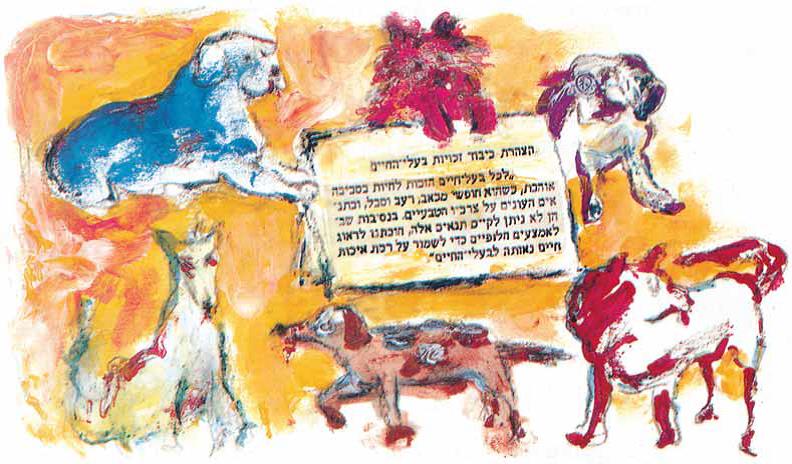 הצהרת כיבוד זכויות בעלי־החיים
"לכל בעל־חיים הזכות לחיות בסביבה
אוהבת, כשהוא חופשי מכאב, רעב וסבל, ובתנ־
אים העונים על צרכיו הטבעיים. בנסיבות שב־
הן לא ניתן לקיים תנאים אלה, חובתנו לדאוג
לאמצעים חלופיים כדי לשמור על רמת איכות
חיים נאותה לבעלי־החיים"